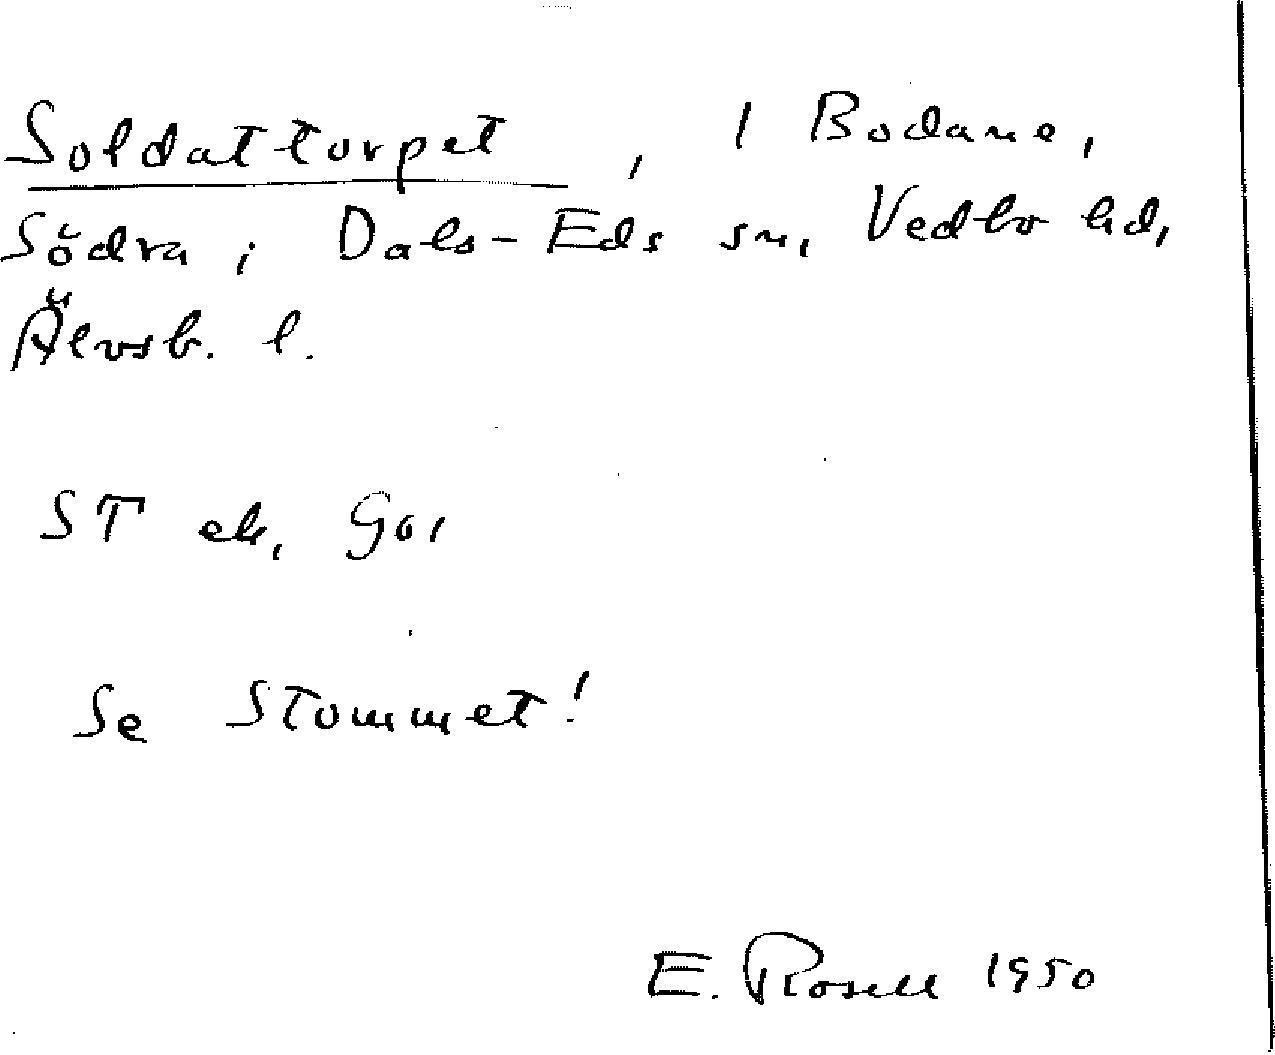 Soldattorpet, 1 Bodane,
Södra i Dals-Eds sn, Vedbo hd,
Älvsb. l.
ST ek, Go1
Se Stommet!
E. Rosell 1950